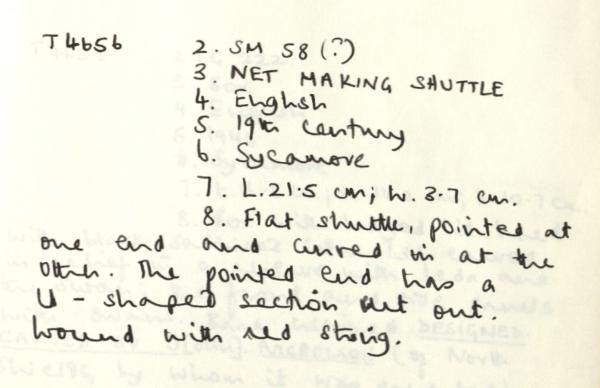 T4656 2. SM 58 (?)
3. NET MAKING SHUTTLE
4. English
5. 19th Century
6. Sycamore
7. L. 21.5 cm; W. 3.7 cm.
8. Flat shuttle pointed at
one end and curved in at the
other. The pointed end has a
U-shaped section cut out.
Wound with red string.